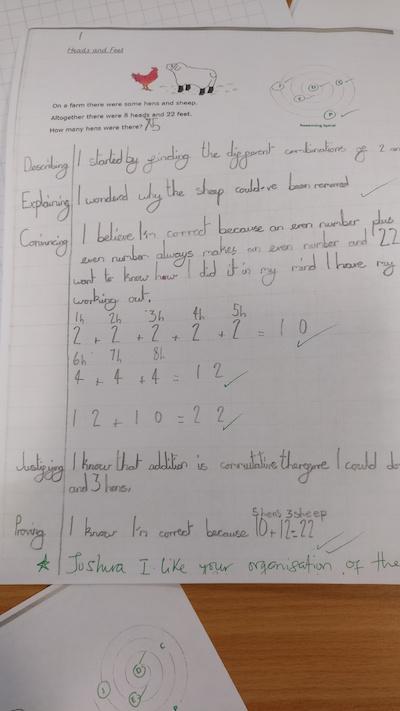 1
Heads and Feet
On a farm there were some hens and sheep.
Altogether there were 8 heads and 22 feet.
How many hens were there? 5
Reasoning Spiral
Describing I started by finding the different combinations of 2 an
Explaining I wondered why the sheep could've been removed
Convincing I believe I'm correct because an even number plus
even number always makes an even number and 22
want to know how I did it in my mind I have my
working out.
1h 2h 3h 4h 5h
2 + 2 + 2 + 2 + 2 = 10
6h 7h 8h
4 + 4 + 4 = 12
12 + 10 = 22
Justifying I know that addition is commutative therefore I could do
and 3 hens.
5 hens 3 sheep
Proving I know I'm correct because 10+12=22
Joshua I like your organisation of the
D
E